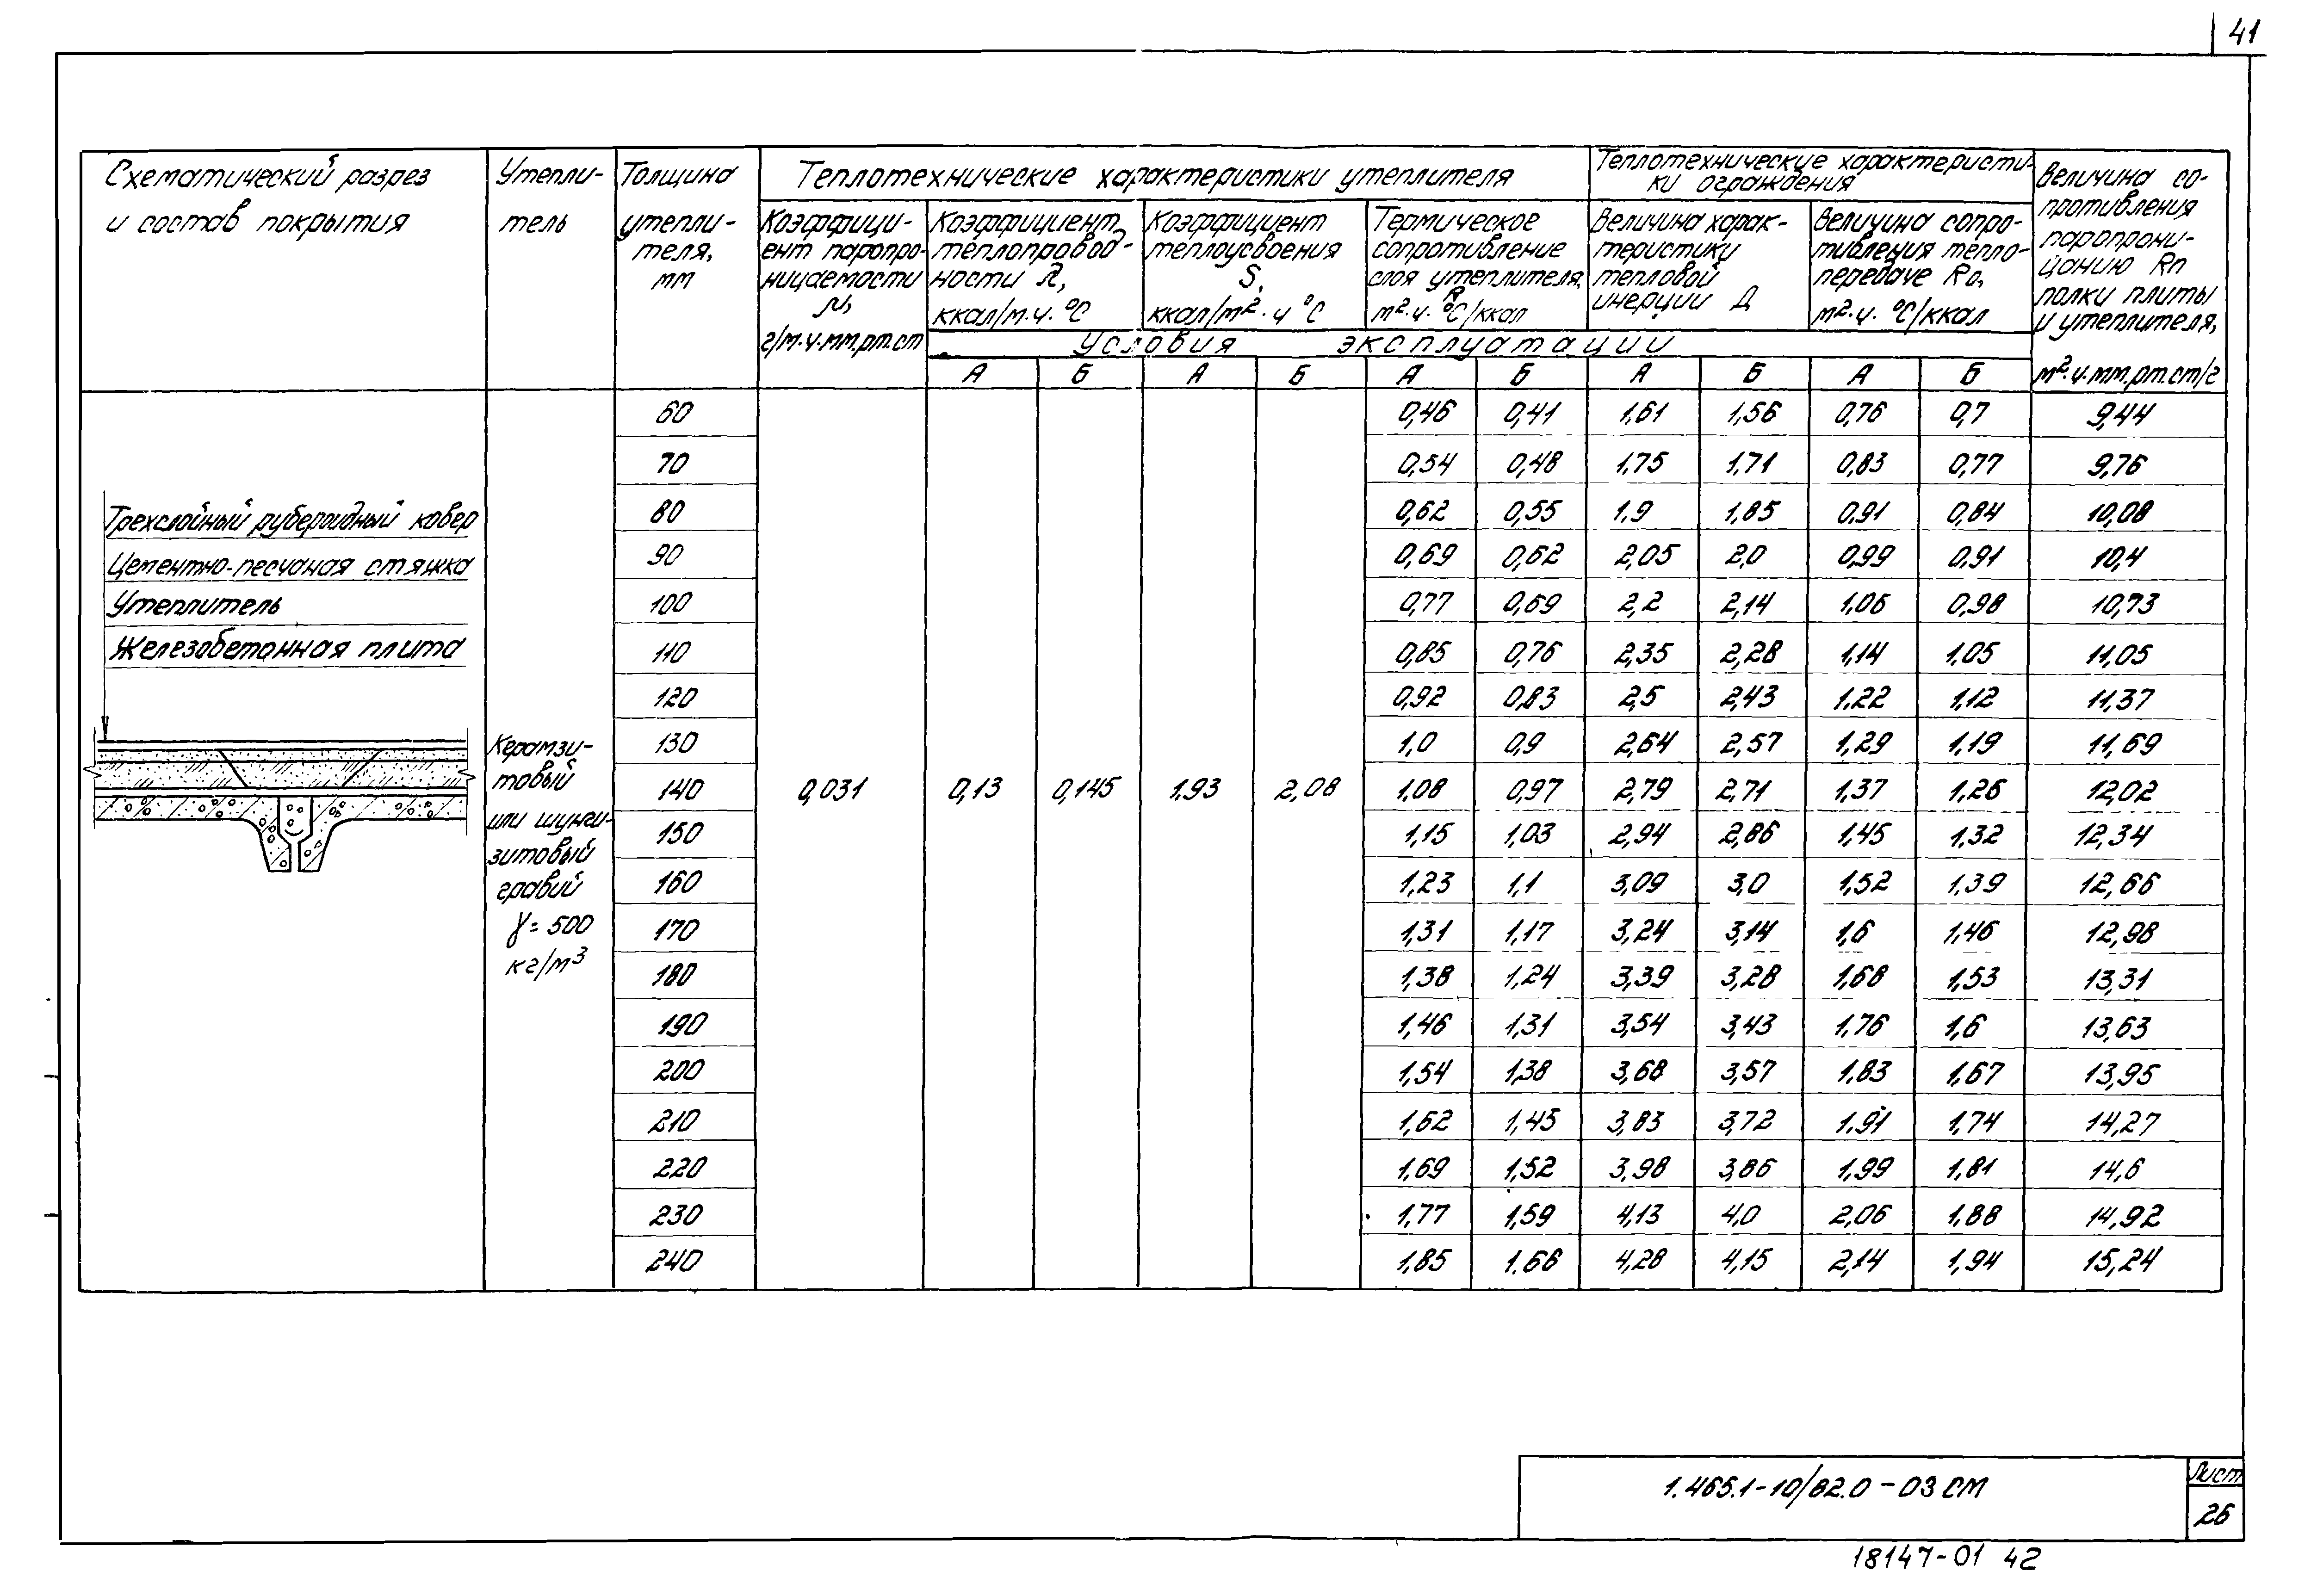 41
Схематический разрез
и состав покрытия
Утепли-
тель
Толщина
утепли-
теля,
мм
Теплотехнические характеристики утеплителя
Теплотехнические характеристи-
ки ограждения
Величина со-
противления
паропрони-
цанию Rп
полки плиты
и утеплителя,
м²·ч·мм.рт.ст/г
Коэффици-
ент паропро-
ницаемости
μ,
г/м·ч·мм.рт.ст
Коэффициент
теплопровод-
ности λ,
ккал/м·ч·°С
Коэффициент
теплоусвоения
S,
ккал/м²·ч °С
Термическое
сопротивление
слоя утеплителя,
R
м²·ч·°С/ккал
Величина харак-
теристики
тепловой
инерции Д
Величина сопро-
тивления тепло-
передаче Rо,
м²·ч·°С/ккал
Условия эксплуатации
А Б А Б А Б А Б А Б
Трехслойный рубероидный ковер
Цементно-песчаная стяжка
Утеплитель
Железобетонная плита
Керамзи-
товый
или шунги-
зитовый
гравий
γ = 500
кг/м³
0,031 0,13 0,145 1,93 2,08
60 0,46 0,41 1,61 1,56 0,76 0,7 9,44
70 0,54 0,48 1,75 1,71 0,83 0,77 9,76
80 0,62 0,55 1,9 1,85 0,91 0,84 10,08
90 0,69 0,62 2,05 2,0 0,99 0,91 10,4
100 0,77 0,69 2,2 2,14 1,06 0,98 10,73
110 0,85 0,76 2,35 2,28 1,14 1,05 11,05
120 0,92 0,83 2,5 2,43 1,22 1,12 11,37
130 1,0 0,9 2,64 2,57 1,29 1,19 11,69
140 1,08 0,97 2,79 2,71 1,37 1,26 12,02
150 1,15 1,03 2,94 2,86 1,45 1,32 12,34
160 1,23 1,1 3,09 3,0 1,52 1,39 12,66
170 1,31 1,17 3,24 3,14 1,6 1,46 12,98
180 1,38 1,24 3,39 3,28 1,68 1,53 13,31
190 1,46 1,31 3,54 3,43 1,76 1,6 13,63
200 1,54 1,38 3,68 3,57 1,83 1,67 13,95
210 1,62 1,45 3,83 3,72 1,91 1,74 14,27
220 1,69 1,52 3,98 3,86 1,99 1,81 14,6
230 1,77 1,59 4,13 4,0 2,06 1,88 14,92
240 1,85 1.66 4,28 4,15 2,14 1,94 15,24
1.465.1-10/82.0-03 СМ
Лист
26
18147-01 42